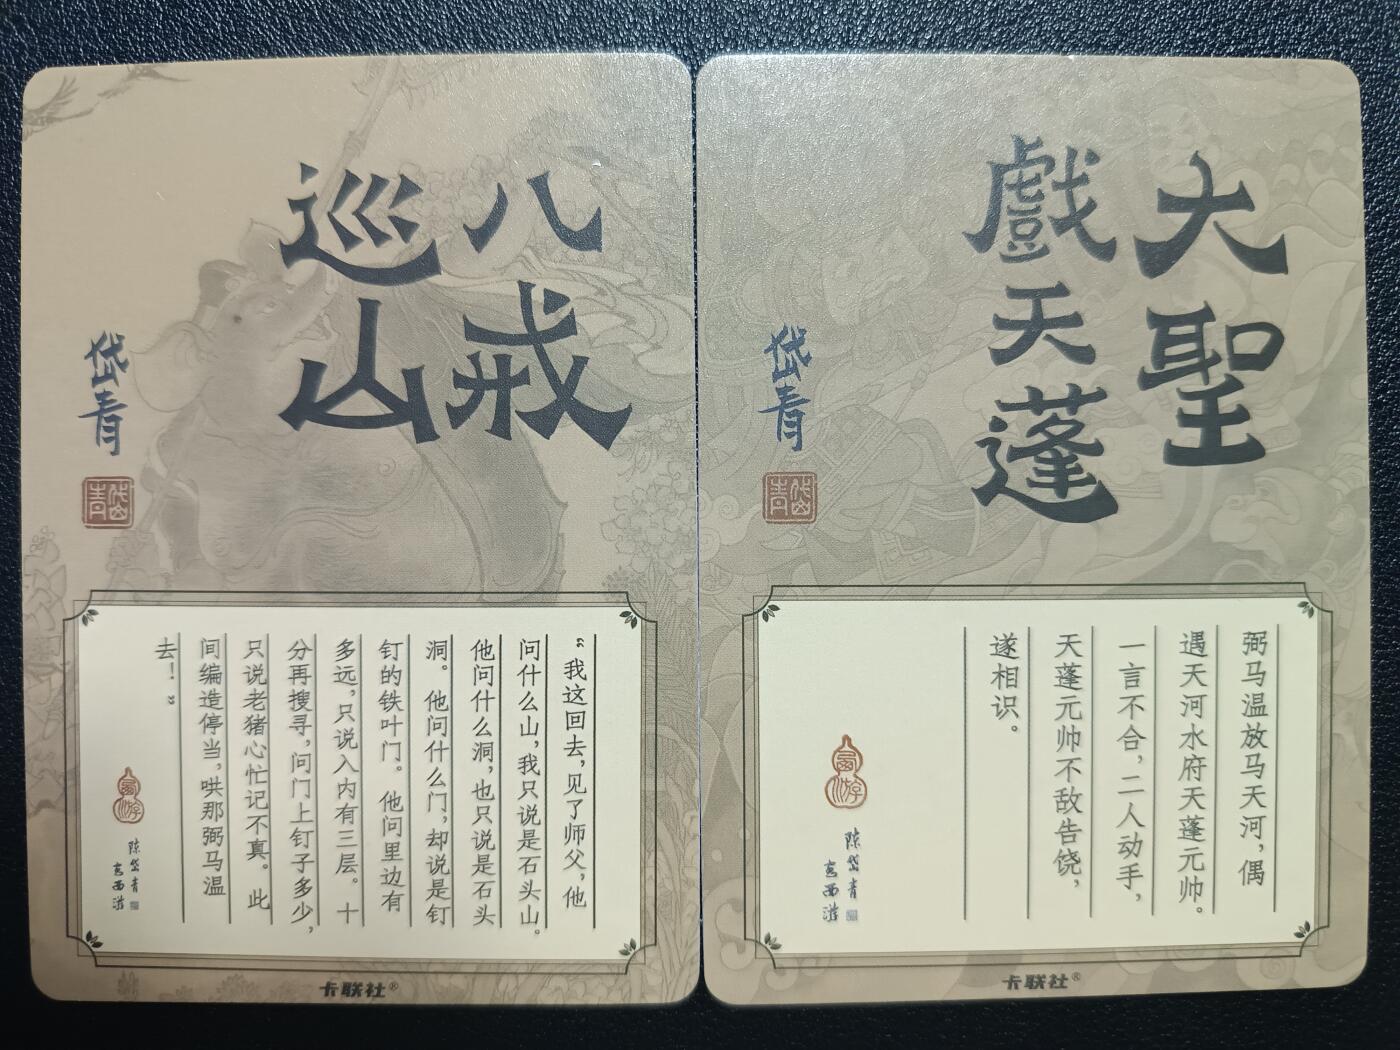 八戒
巡山
岱青
岱青
“我这回去，见了师父，他
问什么山，我只说是石头山。
他问什么洞，也只说是石头
洞。他问什么门，却说是钉
钉的铁叶门。他问里边有
多远，只说入内有三层。十
分再搜寻，问门上钉子多少，
只说老猪心忙记不真。此
间编造停当，哄那弼马温
去！”
陈岱青
画西游
卡联社®
大聖
戲天蓬
岱青
岱青
弼马温放马天河，偶
遇天河水府天蓬元帅。
一言不合，二人动手，
天蓬元帅不敌告饶，
遂相识。
陈岱青
画西游
卡联社®